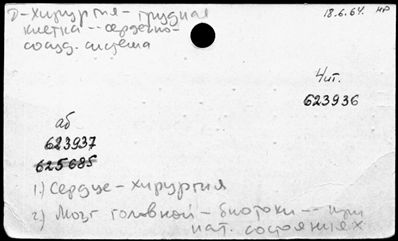 О-хирургия - грудная
клетка -- сердечно-
сосуд. система
18.6.64. нр
Чит.
623936
аб
623937
625685
1.) Сердце - хирургия
2) Мозг головной - биотоки -- при
пат. состояниях